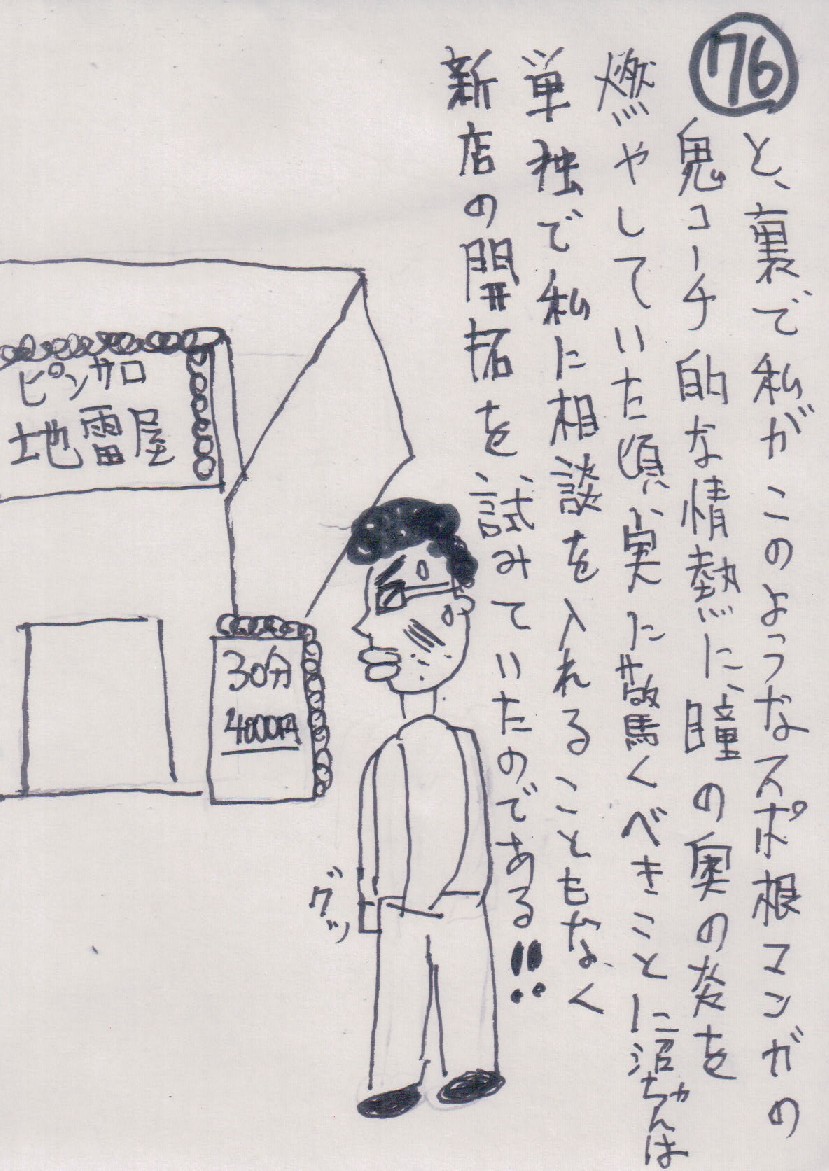 76
と、裏で私がこのようなスポ根マンガの
鬼コーチ的な情熱に、瞳の奥の炎を
燃やしていた頃、実に驚くべきことに沼ちゃんは
単独で私に相談を入れることもなく
新店の開拓を試みていたのである!!
ピンサロ
地雷屋
30分
4000円
グッ